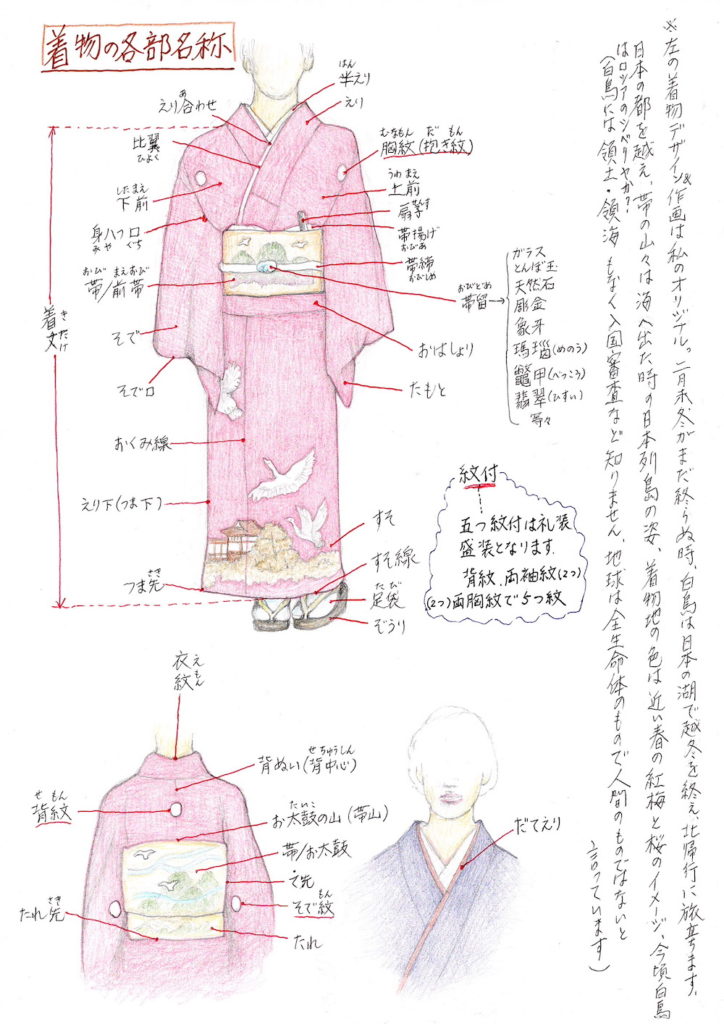 着物の各部名称
※左の着物デザイン&作画は私のオリジナル。二月末、冬がまだ終らぬ時、白鳥は日本の湖で越冬を終え、北帰行に旅立ちます。
日本の都を越え、帯の山々は海へ出た時の日本列島の姿、着物地の色は近い春の紅梅と桜のイメージ、今頃白鳥
はロシアのシベリヤか?
(白鳥には領土・領海もなく入国審査など知りません、地球は全生命体のもので人間のものではないと
言っています)
はん
半えり
えり
あ
えり合わせ
比翼
ひよく
むなもん だ もん
胸紋(抱き紋)
したまえ
下前
うわまえ
上前
扇子
せんす
身八つ口
みやつくち
帯揚げ
おびあ
おび まえおび
帯/前帯
帯締
おびじめ
おびどめ
帯留
ガラス
とんぼ玉
天然石
彫金
象牙
瑪瑙(めのう)
鼈甲(べっこう)
翡翠(ひすい)
等々
着丈
きたけ
そで
そで口
おはしょり
たもと
おくみ線
えり下(つま下)
すそ
すそ線
さき
つま先
たび
足袋
ぞうり
紋付
五つ紋付は礼装
盛装となります
背紋、両袖紋(2つ)
(2つ)両胸紋で5つ紋
衣紋
えもん
せちゅうしん
背ぬい(背中心)
せ もん
背紋
たいこ
お太鼓の山(帯山)
帯/お太鼓
て先
もん
そで紋
さき
たれ先
たれ
だてえり